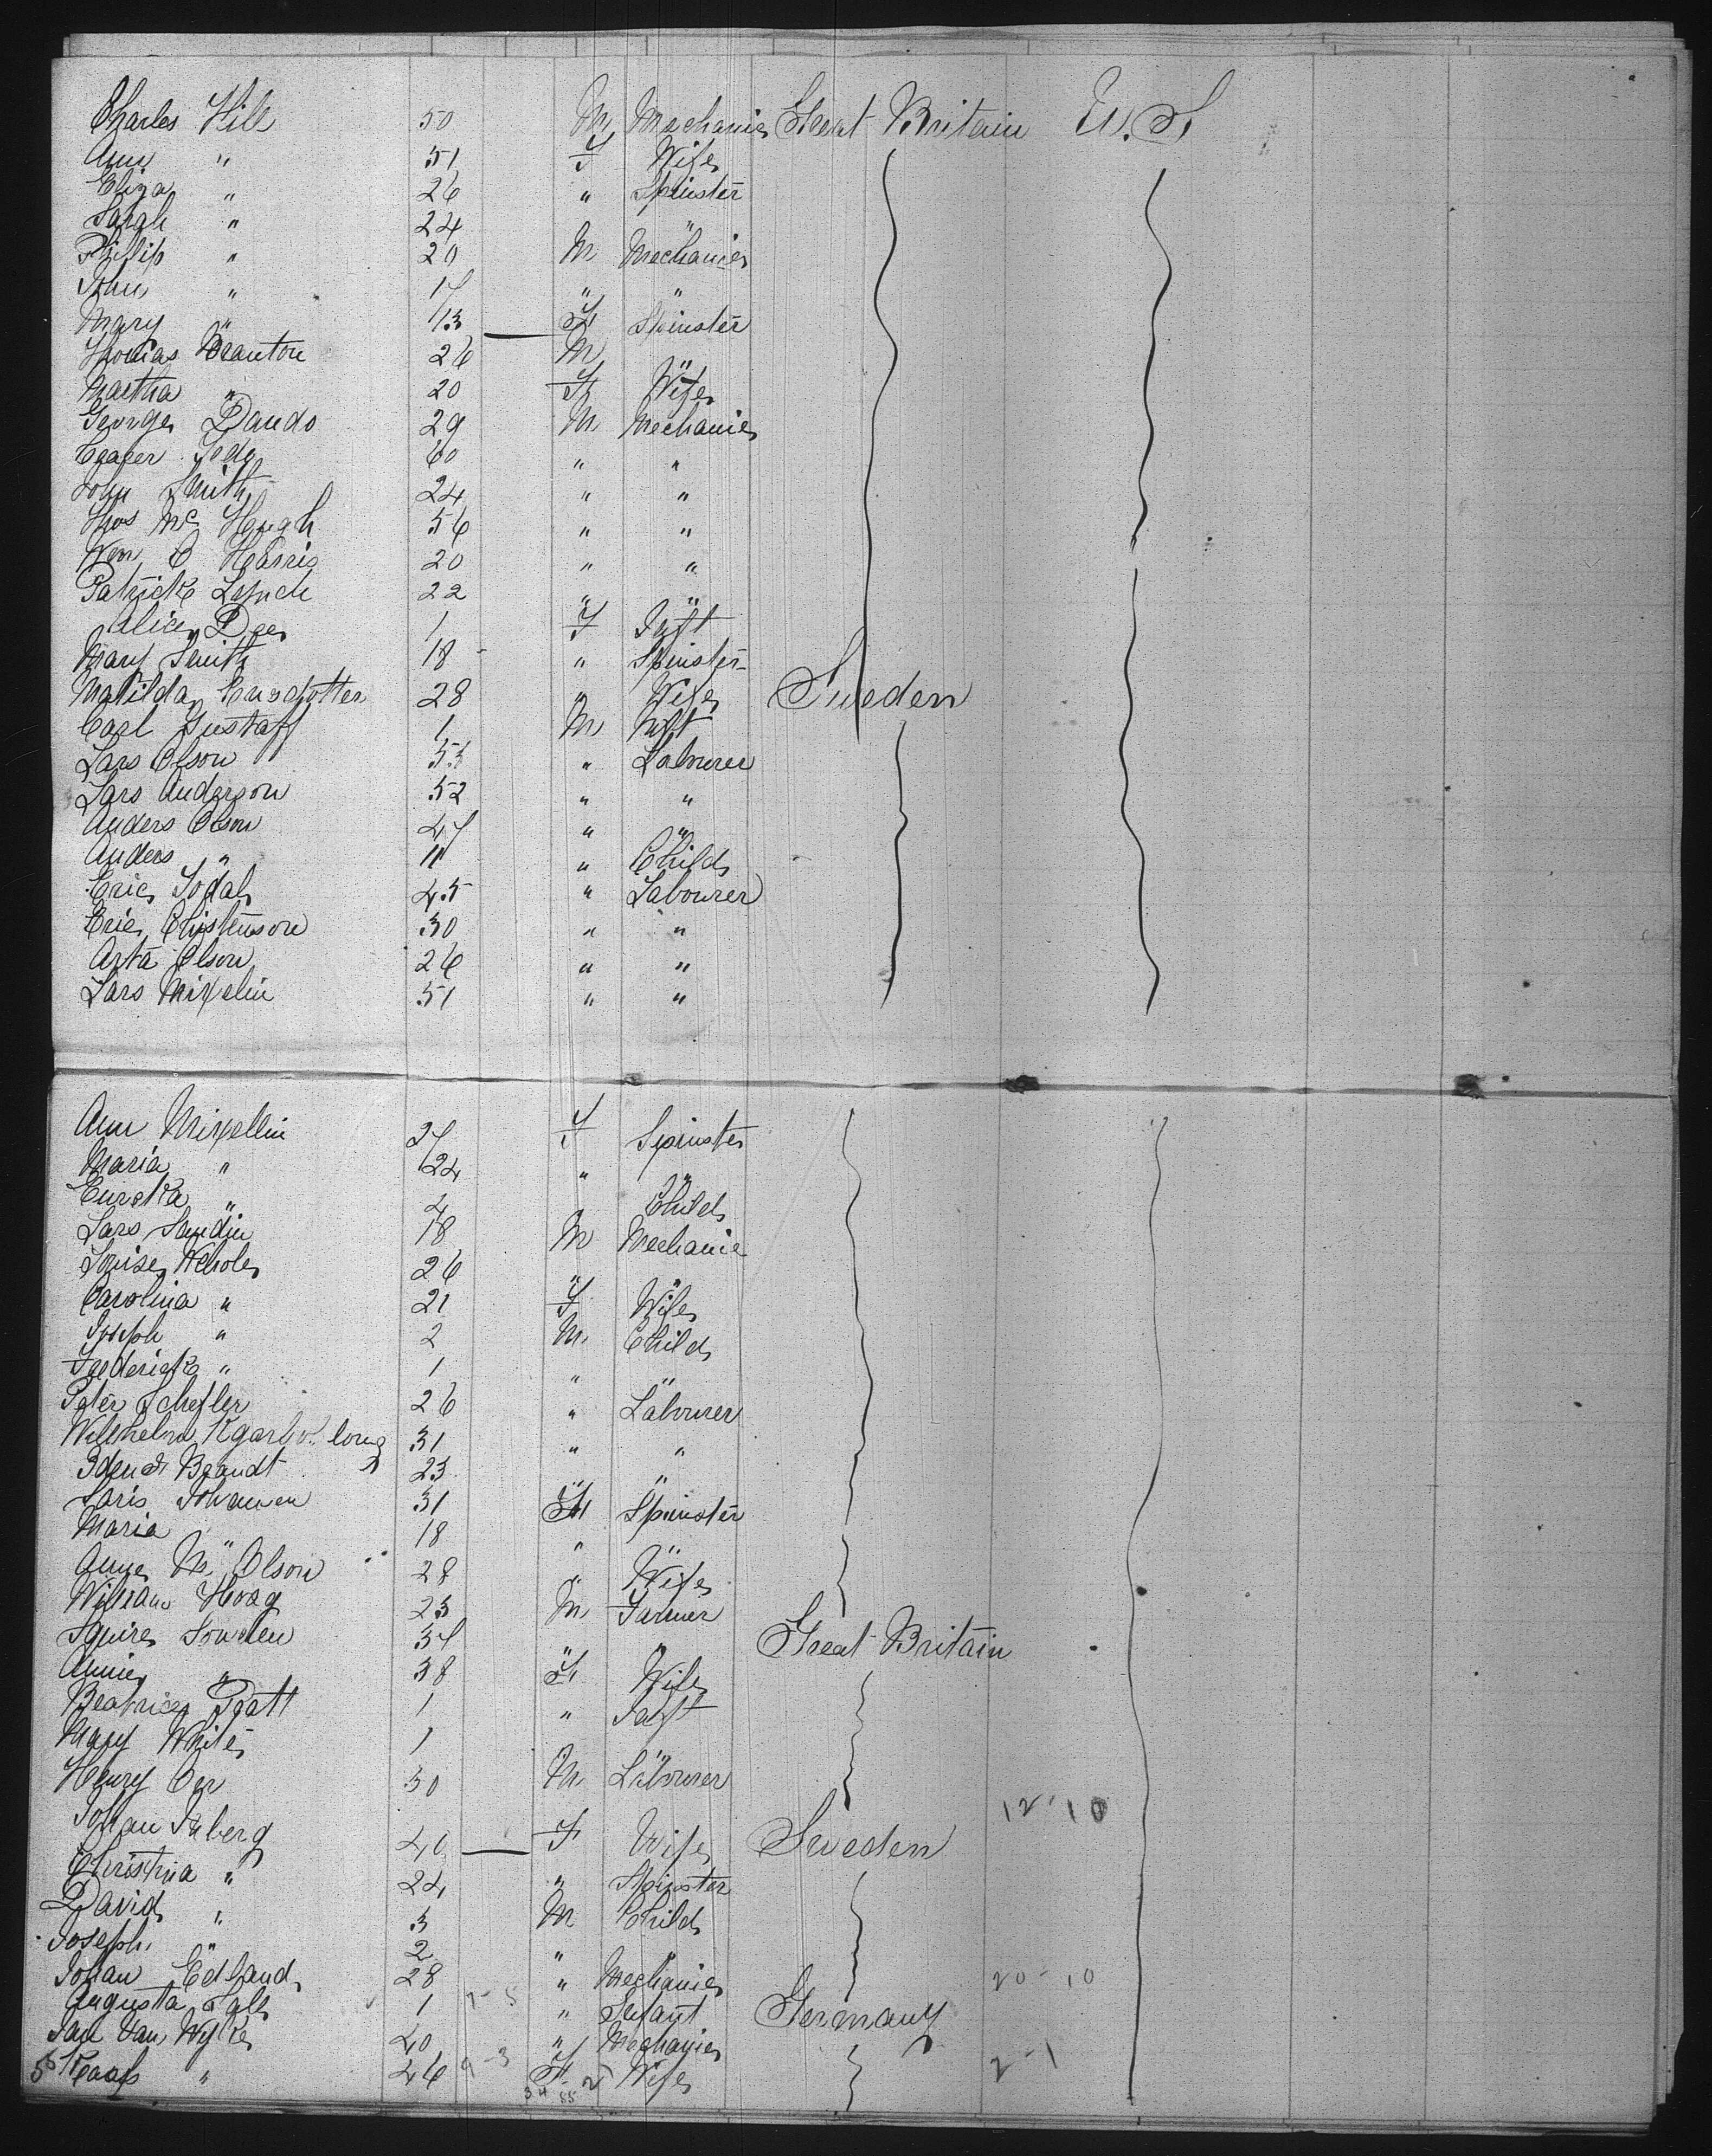 Charles Hill 50 M Mechanic Great Britain U.S
Ann " 51 F Wife
Eliza " 26 " Spinster
Sarah " 24 "
Phillip " 20 M Mechanic
John " 17 " "
Mary " 13 F Spinster
Thomas Branton 26 M "
Martha " 20 F Wife
George Dando 29 M Mechanic
60 " "
John Smith 24 " "
Thos Mc Hugh 56 " "
Wm C Harris 20 " "
Patrick Lynch 22 " "
Alice Dee 1 F Inft
Mary Smith 18 " Spinster
Matilda 28 " Wife Sweden
Carl Gustaff 1 M Inft
Lars Olson 53 " Labourer
Lars Anderson 52 " "
Anders Olson 47 " "
Anders " 11 " Child
Eric Sodal 45 " Labourer
Eric Christenson 30 " "
Arta Olson 26 " "
Lars Mixelin 51 " "
Ann Mixellin 27 F Spinster
Maria " 24 " "
" 4 " Child
Lars Sandin 18 M Mechanic
Louise 26 " "
Carolina " 21 F Wife
Joseph " 2 M Child
Frederick " 1 " "
Peter Schefler 26 " Labourer
Willhelm 31 " "
Brandt 23 " "
Johansen 31 F Spinster
Maria " 18 " "
Anne M Olson 28 " Wife
William Hoag 23 M Farmer
Squire Sowden 37 " " Great Britain
Annie " 38 F Wife
Beatrice Pratt 1 " Inft
Mary White 1 " "
Henry Orr 30 M Labourer
12-10
Johan Inberg 40 F Wife Sweden
Christina " 24 " Spinster
David " 3 M Child
Joseph " 2 " "
Johan Edland 28 " Mechanic 20-10
Augusta 1 " Infant Germany
Jan Van Wyke 40 " Mechanic
" 46 9-3 F Wife 2-1